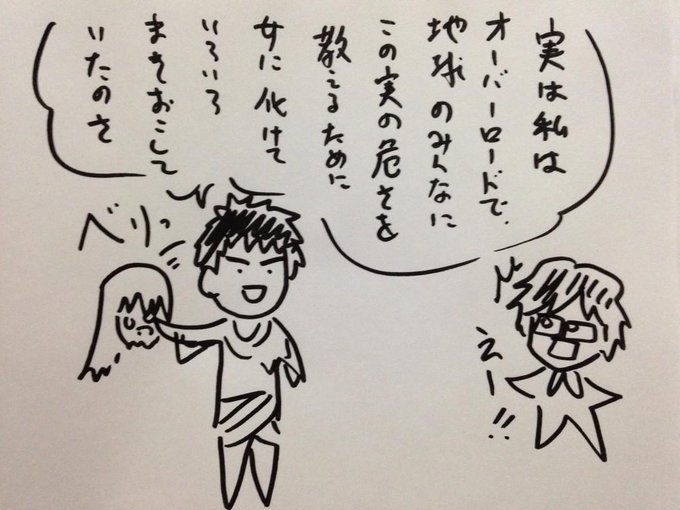 実は私は
オーバーロードで、
地球のみんなに
この実の危さを
教えるために
女に化けて
いろいろ
まきおこして
いたのさ
ベリっ
えー!!